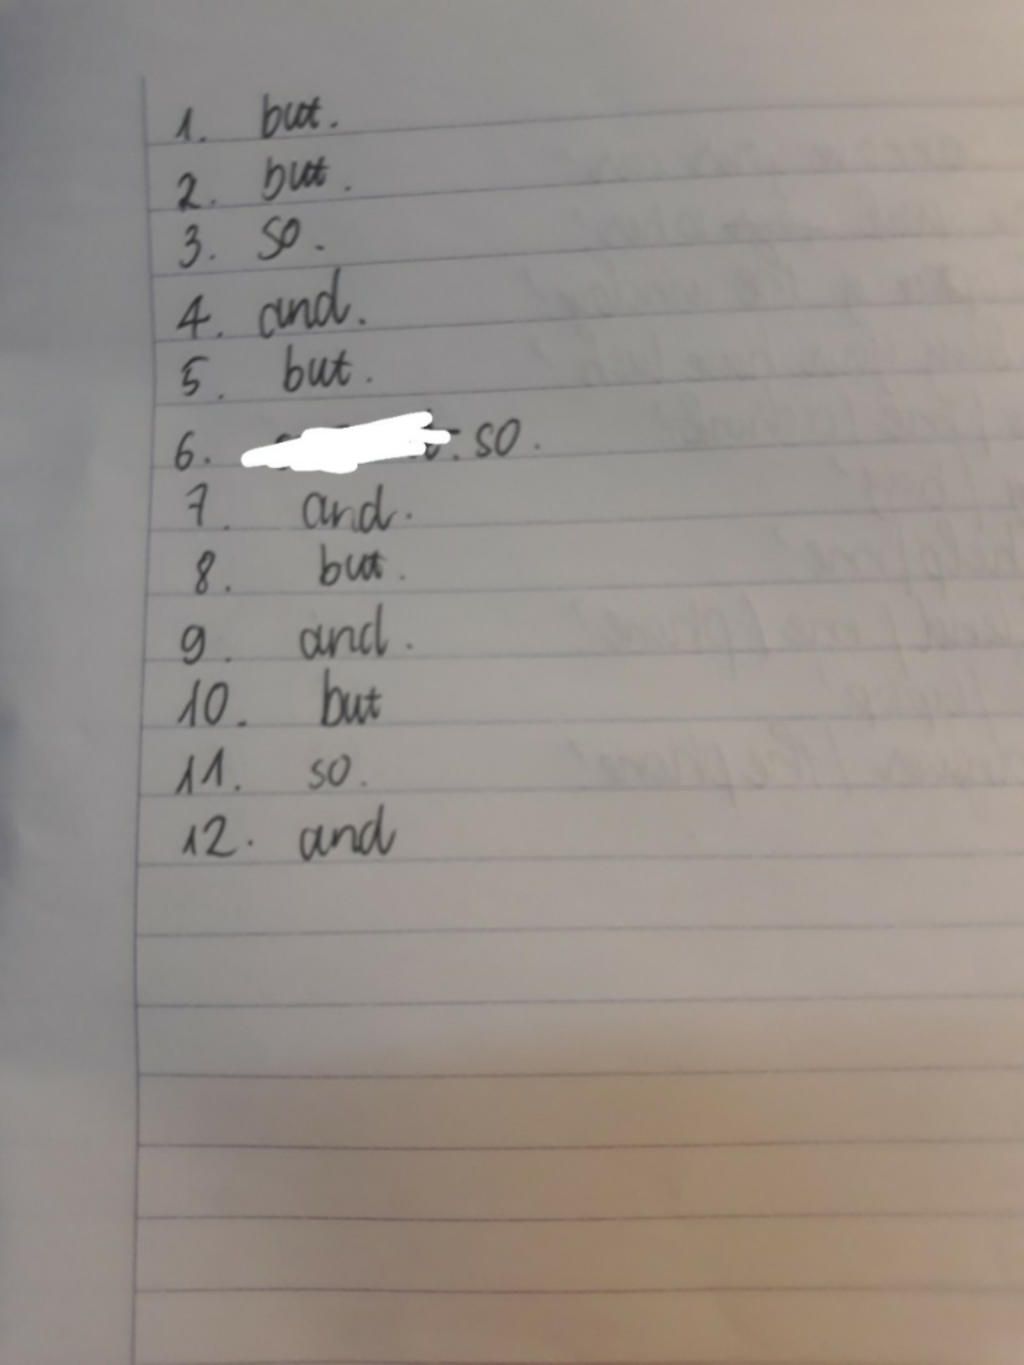 1. but.
2. but.
3. so.
4. and.
5. but.
6. so.
7. and.
8. but.
9. and.
10. but
11. so.
12. and